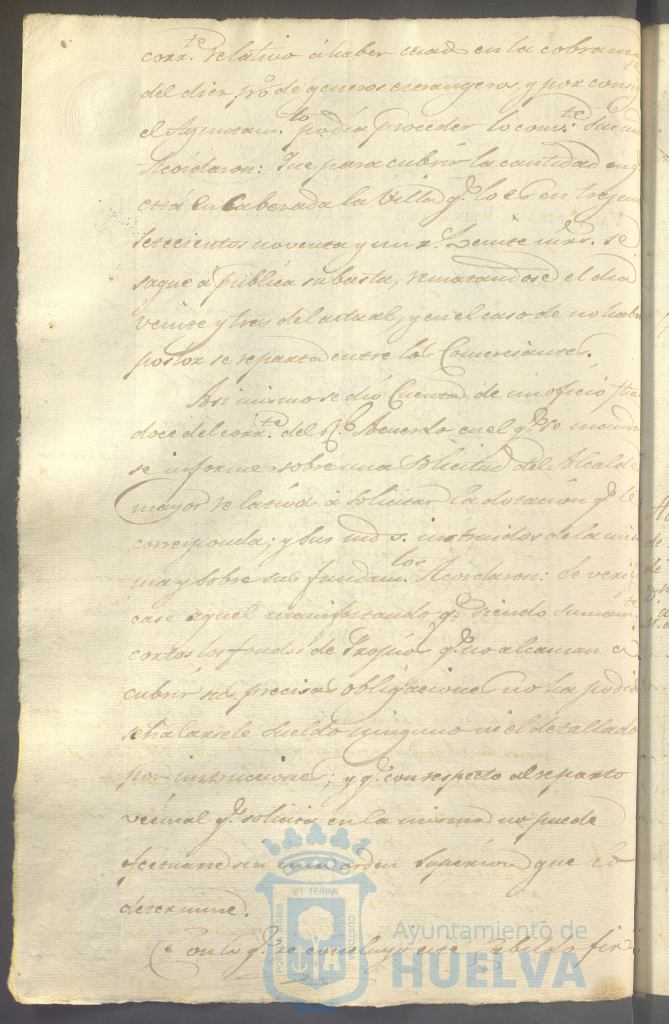 corr.te relativo á haber cesado en la cobranza
del diez pr% de generos extrangeros, y por consig.te
el Ayuntam.to podía proceder lo comb.te Sus mds
Acordaron: Que para cubrir la cantidad en q.
está encabezada la Villa q.e lo es en tres mil
setecientos noventa y un r.s veinte mrs. se
saque á pública subasta, rematandose el dia
veinte y tres del actual, y en el caso de no haber
postor se reparta entre los Comerciantes.
Asi mismo se dió Cuenta de un oficio fha
doce del corr.te del R.l Acuerdo en el q.e se manda
se informe sobre una solicitud del Alcalde
mayor relativa á solicitar la dotación q.e le
corresponda; y sus md.s instruidos de la mis
ma y sobre sus fundam.tos Acordaron: Se veri
case aquel manifestando q.e siendo sumam.te
cortos los fondos de Propios q.e no alcanzan á
cubrir sus precisas obligaciones no ha podido
señalarsele sueldo ninguno ni el detallado
por instrucciones; y q.e con respecto al reparto
vecinal q.e solicita en la misma no puede
efectuarse sin una orden Superior que lo
determine.
Con lo q.e se concluyo este Cabildo fir
PORTUS MARIS ET TERRÆ CUSTODIA
Ayuntamiento de
HUELVA